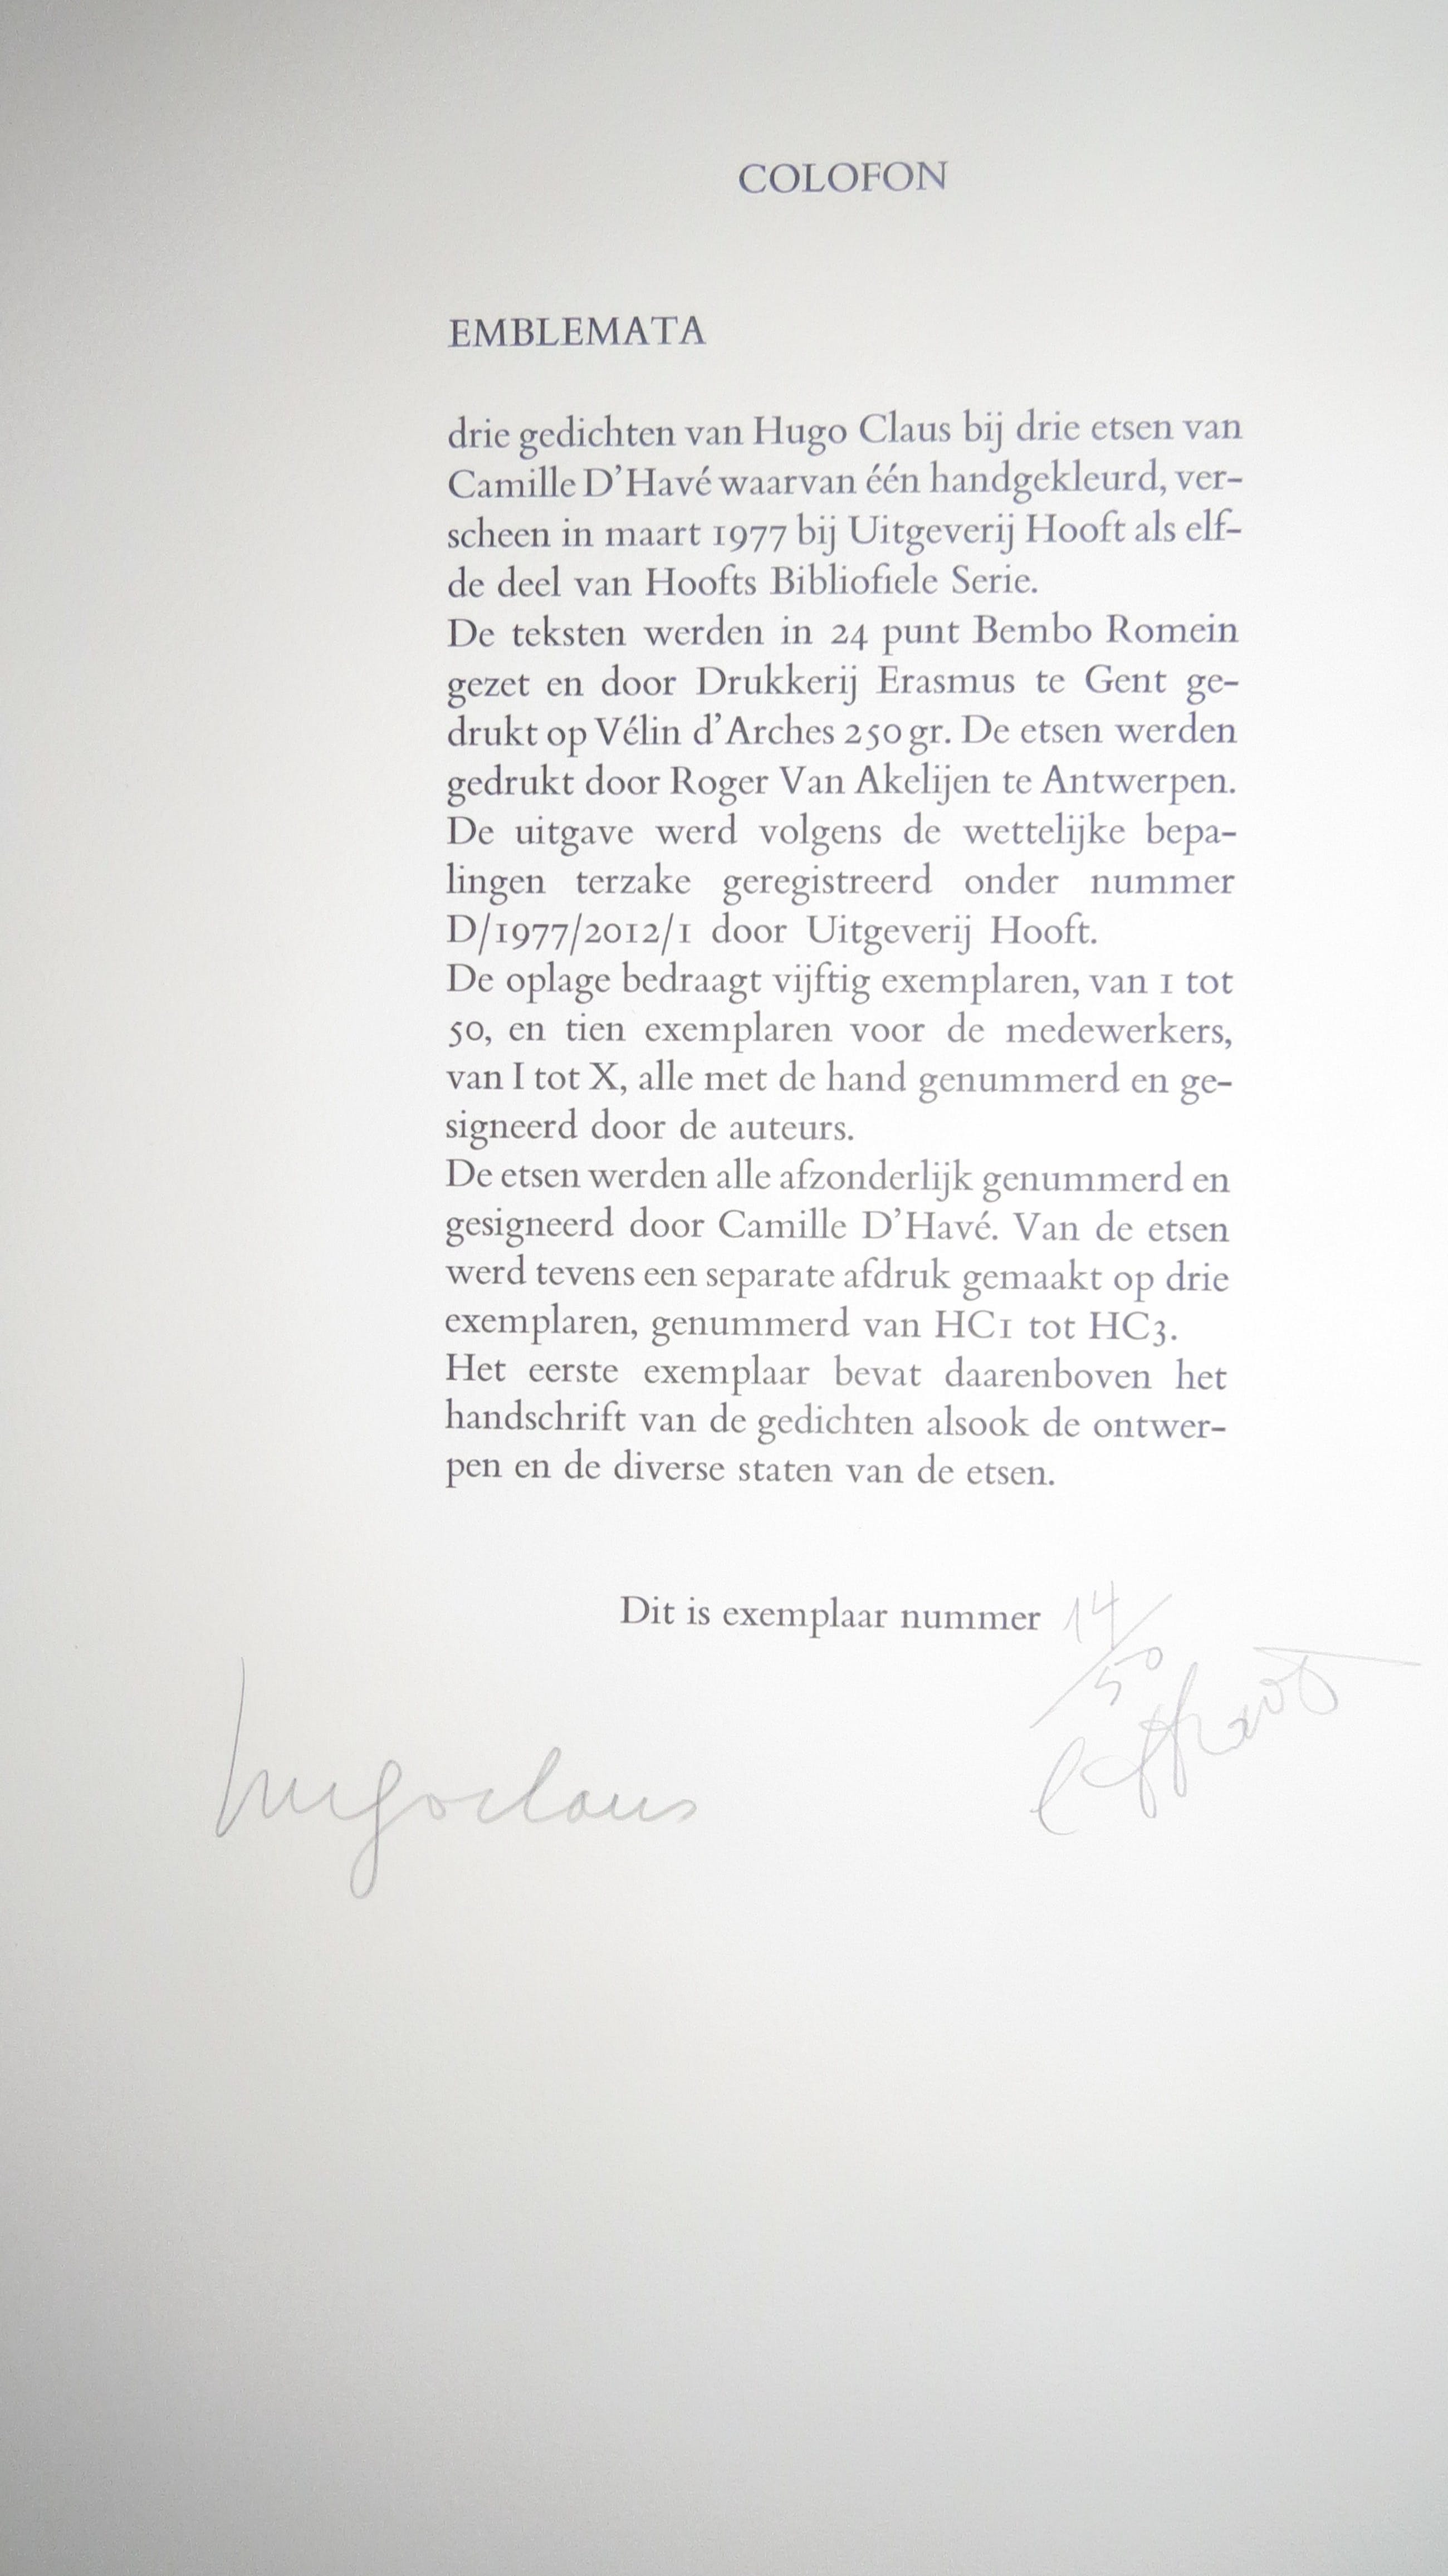 COLOFON
EMBLEMATA
drie gedichten van Hugo Claus bij drie etsen van
Camille D’Havé waarvan één handgekleurd, ver-
scheen in maart 1977 bij Uitgeverij Hooft als elf-
de deel van Hoofts Bibliofiele Serie.
De teksten werden in 24 punt Bembo Romein
gezet en door Drukkerij Erasmus te Gent ge-
drukt op Vélin d’Arches 250 gr. De etsen werden
gedrukt door Roger Van Akelijen te Antwerpen.
De uitgave werd volgens de wettelijke bepa-
lingen terzake geregistreerd onder nummer
D/1977/2012/1 door Uitgeverij Hooft.
De oplage bedraagt vijftig exemplaren, van 1 tot
50, en tien exemplaren voor de medewerkers,
van I tot X, alle met de hand genummerd en ge-
signeerd door de auteurs.
De etsen werden alle afzonderlijk genummerd en
gesigneerd door Camille D’Havé. Van de etsen
werd tevens een separate afdruk gemaakt op drie
exemplaren, genummerd van HC1 tot HC3.
Het eerste exemplaar bevat daarenboven het
handschrift van de gedichten alsook de ontwer-
pen en de diverse staten van de etsen.
Dit is exemplaar nummer 14/50
hugoclaus